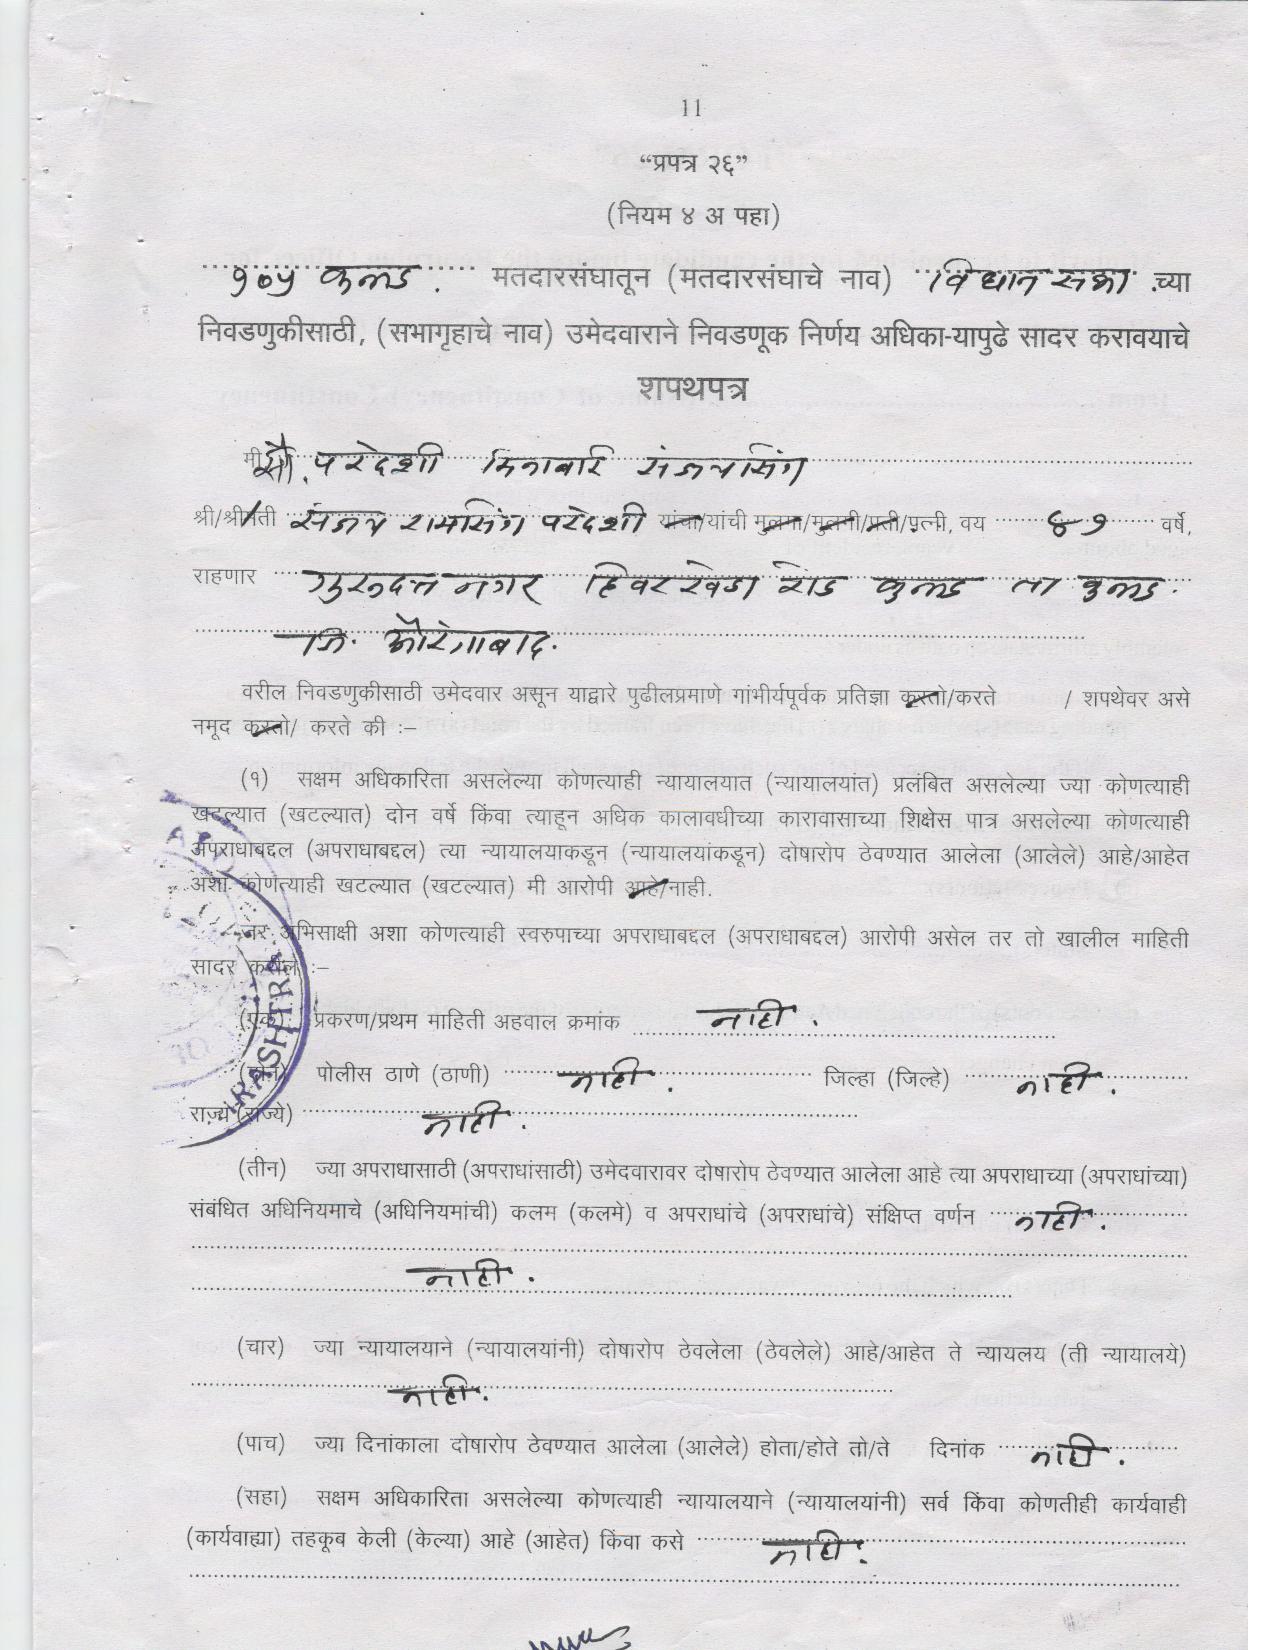 11
“प्रपत्र २६”
(नियम ४ अ पहा)
१०५ कन्नड. मतदारसंघातून (मतदारसंघाचे नाव) विधानसभा च्या
निवडणुकीसाठी, (सभागृहाचे नाव) उमेदवाराने निवडणूक निर्णय अधिका-यापुढे सादर करावयाचे
शपथपत्र
मी सौ. परदेशी मिनाबाई संजयसिंग
श्री/श्रीमती संजय रामसिंग परदेशी यांचा/यांची मुलगा/मुलगी/पती/पत्नी, वय ४१ वर्षे,
राहणार गुरुदत्त नगर हिवरखेडा रोड कन्नड ता कन्नड.
जि. औरंगाबाद.
वरील निवडणुकीसाठी उमेदवार असून याद्वारे पुढीलप्रमाणे गांभीर्यपूर्वक प्रतिज्ञा करतो/करते / शपथेवर असे
नमूद करतो/ करते की :–
(१) सक्षम अधिकारिता असलेल्या कोणत्याही न्यायालयात (न्यायालयांत) प्रलंबित असलेल्या ज्या कोणत्याही
खटल्यात (खटल्यात) दोन वर्षे किंवा त्याहून अधिक कालावधीच्या कारावासाच्या शिक्षेस पात्र असलेल्या कोणत्याही
अपराधाबद्दल (अपराधाबद्दल) त्या न्यायालयाकडून (न्यायालयांकडून) दोषारोप ठेवण्यात आलेला (आलेले) आहे/आहेत
अशा कोणत्याही खटल्यात (खटल्यात) मी आरोपी आहे/नाही.
जर अभिसाक्षी अशा कोणत्याही स्वरुपाच्या अपराधाबद्दल (अपराधाबद्दल) आरोपी असेल तर तो खालील माहिती
सादर करील :–
(एक) प्रकरण/प्रथम माहिती अहवाल क्रमांक नाही.
(दोन) पोलीस ठाणे (ठाणी) नाही. जिल्हा (जिल्हे) नाही.
राज्य (राज्ये) नाही.
(तीन) ज्या अपराधासाठी (अपराधांसाठी) उमेदवारावर दोषारोप ठेवण्यात आलेला आहे त्या अपराधाच्या (अपराधांच्या)
संबंधित अधिनियमाचे (अधिनियमांची) कलम (कलमे) व अपराधांचे (अपराधांचे) संक्षिप्त वर्णन नाही.
नाही.
(चार) ज्या न्यायालयाने (न्यायालयांनी) दोषारोप ठेवलेला (ठेवलेले) आहे/आहेत ते न्यायलय (ती न्यायालये)
नाही.
(पाच) ज्या दिनांकाला दोषारोप ठेवण्यात आलेला (आलेले) होता/होते तो/ते दिनांक नाही.
(सहा) सक्षम अधिकारिता असलेल्या कोणत्याही न्यायालयाने (न्यायालयांनी) सर्व किंवा कोणतीही कार्यवाही
(कार्यवाह्या) तहकूब केली (केल्या) आहे (आहेत) किंवा कसे नाही.